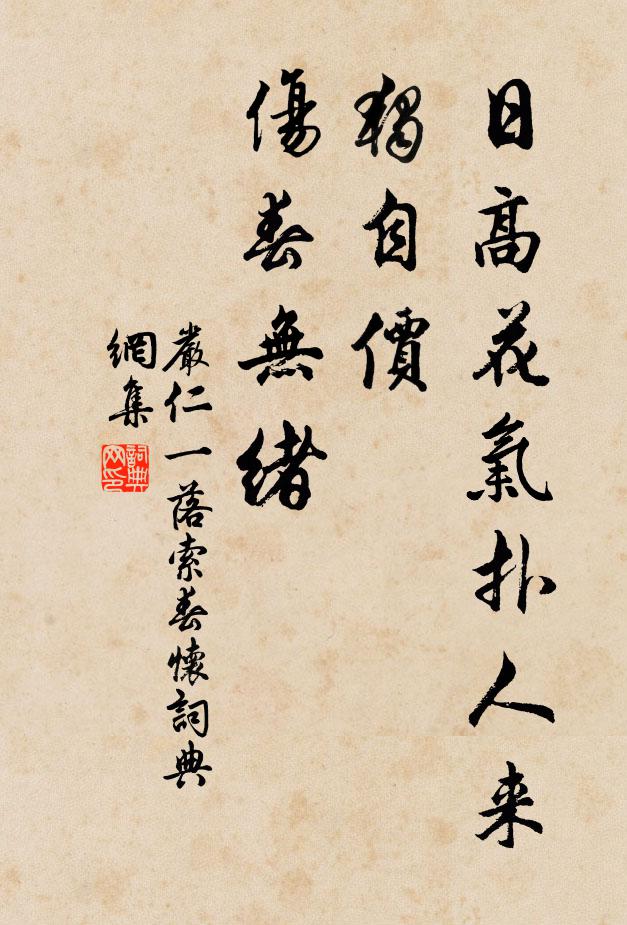 日高花氣扑人来
獨自價
傷春無緒
嚴仁一落索春懷詞典
網集
詞典
网印